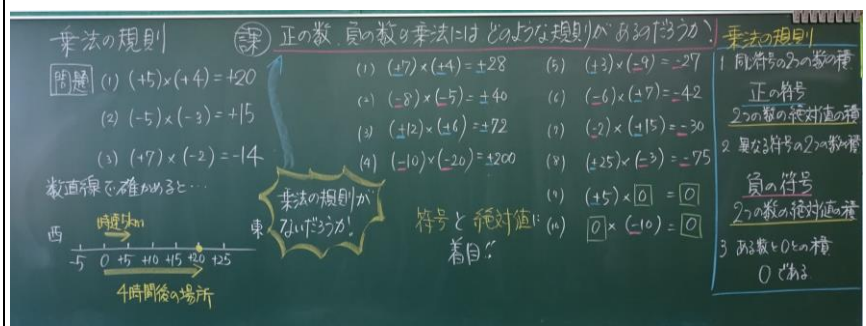 乗法の規則
問題 (1) (+5)×(+4)=+20
(2) (-5)×(-3)=+15
(3) (+7)×(-2)=-14
数直線で確かめると…
時速5km
西 東
-5 0 +5 +10 +15 +20 +25
4時間後の場所
課 正の数、負の数の乗法にはどのような規則があるのだろうか?
乗法の規則が
ないだろうか?
(1) (+7)×(+4)=+28
(2) (-8)×(-5)=+40
(3) (+12)×(+6)=+72
(4) (-10)×(-20)=+200
(5) (+3)×(-9)=-27
(6) (-6)×(+7)=-42
(7) (-2)×(+15)=-30
(8) (+25)×(-3)=-75
(9) (+5)×0=0
(10) 0×(-10)=0
符号と絶対値に
着目!!
乗法の規則
1 同符号の2つの数の積
正の符号
2つの数の絶対値の積
2 異なる符号の2つの数の積
負の符号
2つの数の絶対値の積
3 ある数と0との積
0である